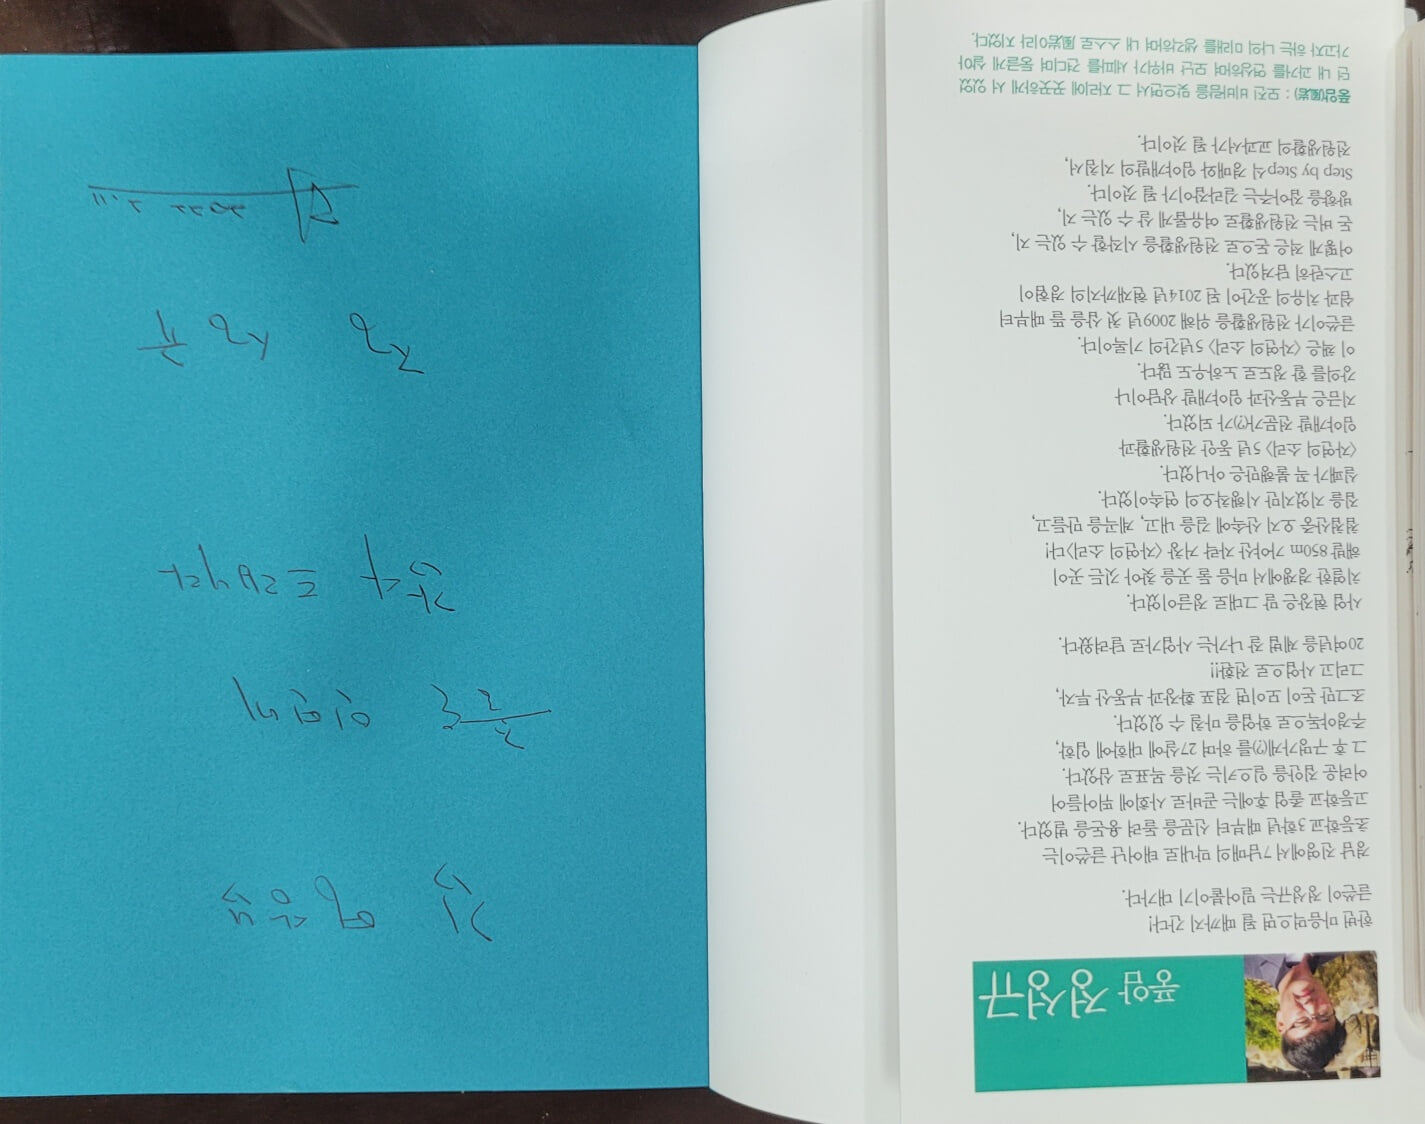 풍암 정성규
한번 마음먹으면 될 때까지 간다!
글쓴이 정성규는 밀어붙이기 대가다.
경남 진영에서 7남매의 막내로 태어난 글쓴이는
초등학교 3학년 때부터 신문을 돌려 용돈을 벌었다.
고등학교 졸업 후에는 곧바로 사회에 뛰어들어
어려운 집안을 일으키는 것을 목표로 삼았다.
그 후 구멍가게(?)를 하며 27살에 대학에 입학,
주경야독으로 학업을 마칠 수 있었다.
조그만 돈이 모이면 점포 확장과 부동산 투자,
그리고 사업으로 전환!!
20여년을 제법 잘 나가는 사업가로 달려왔다.
사업 현장은 말 그대로 정글이었다.
치열한 경쟁에서 마음 둘 곳을 찾아 깃든 곳이
해발 850m 가야산 자락 거창 〈자연의 소리〉다!
첩첩산중 오지 산속에 길을 내고, 계곡을 만들고,
집을 지었지만 시행착오의 연속이었다.
실패가 꼭 불행만은 아니었다.
〈자연의 소리〉 5년 동안 전원생활과
임야개발 전문가(?)가 되었다.
지금은 부동산과 임야개발 상담이나
강의를 할 정도로 노하우도 많다.
이 책은 〈자연의 소리〉 5년간의 기록이다.
글쓴이가 전원생활을 위해 2009년 첫 삽을 뜰 때부터
쉼과 치유의 공간이 된 2014년 현재까지의 경험이
고스란히 담겨있다.
어떻게 적은 돈으로 전원생활을 시작할 수 있는 지,
돈 버는 전원생활로 여유롭게 살 수 있는 지,
방향을 잡아주는 길라잡이가 될 것이다.
Step by Step 식 경매와 임야개발의 지침서,
전원생활의 교과서가 될 것이다.
풍암(風岩) : 모진 비바람을 맞으면서 그 자리에 꿋꿋하게 서 있었
던 내 과거를 연상하며 모난 바위가 세파를 견디며 둥글게 살아
가고자 하는 나의 미래를 생각하며 내 스스로 風岩이라 지었다.
인연에
감사드립니다
정 성규